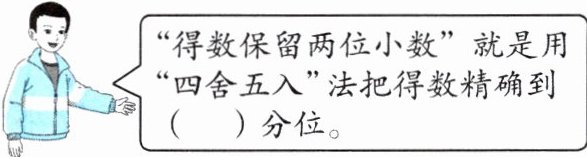 “得数保留两位小数”就是用
“四舍五入”法把得数精确到
（　　）分位。